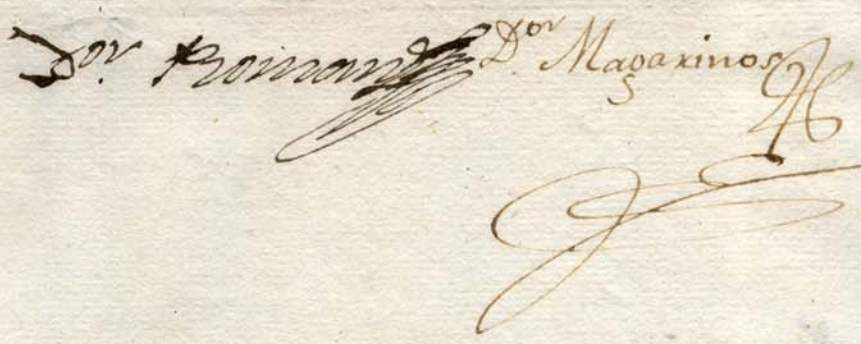 Dor. Roman Dor. Magarinos